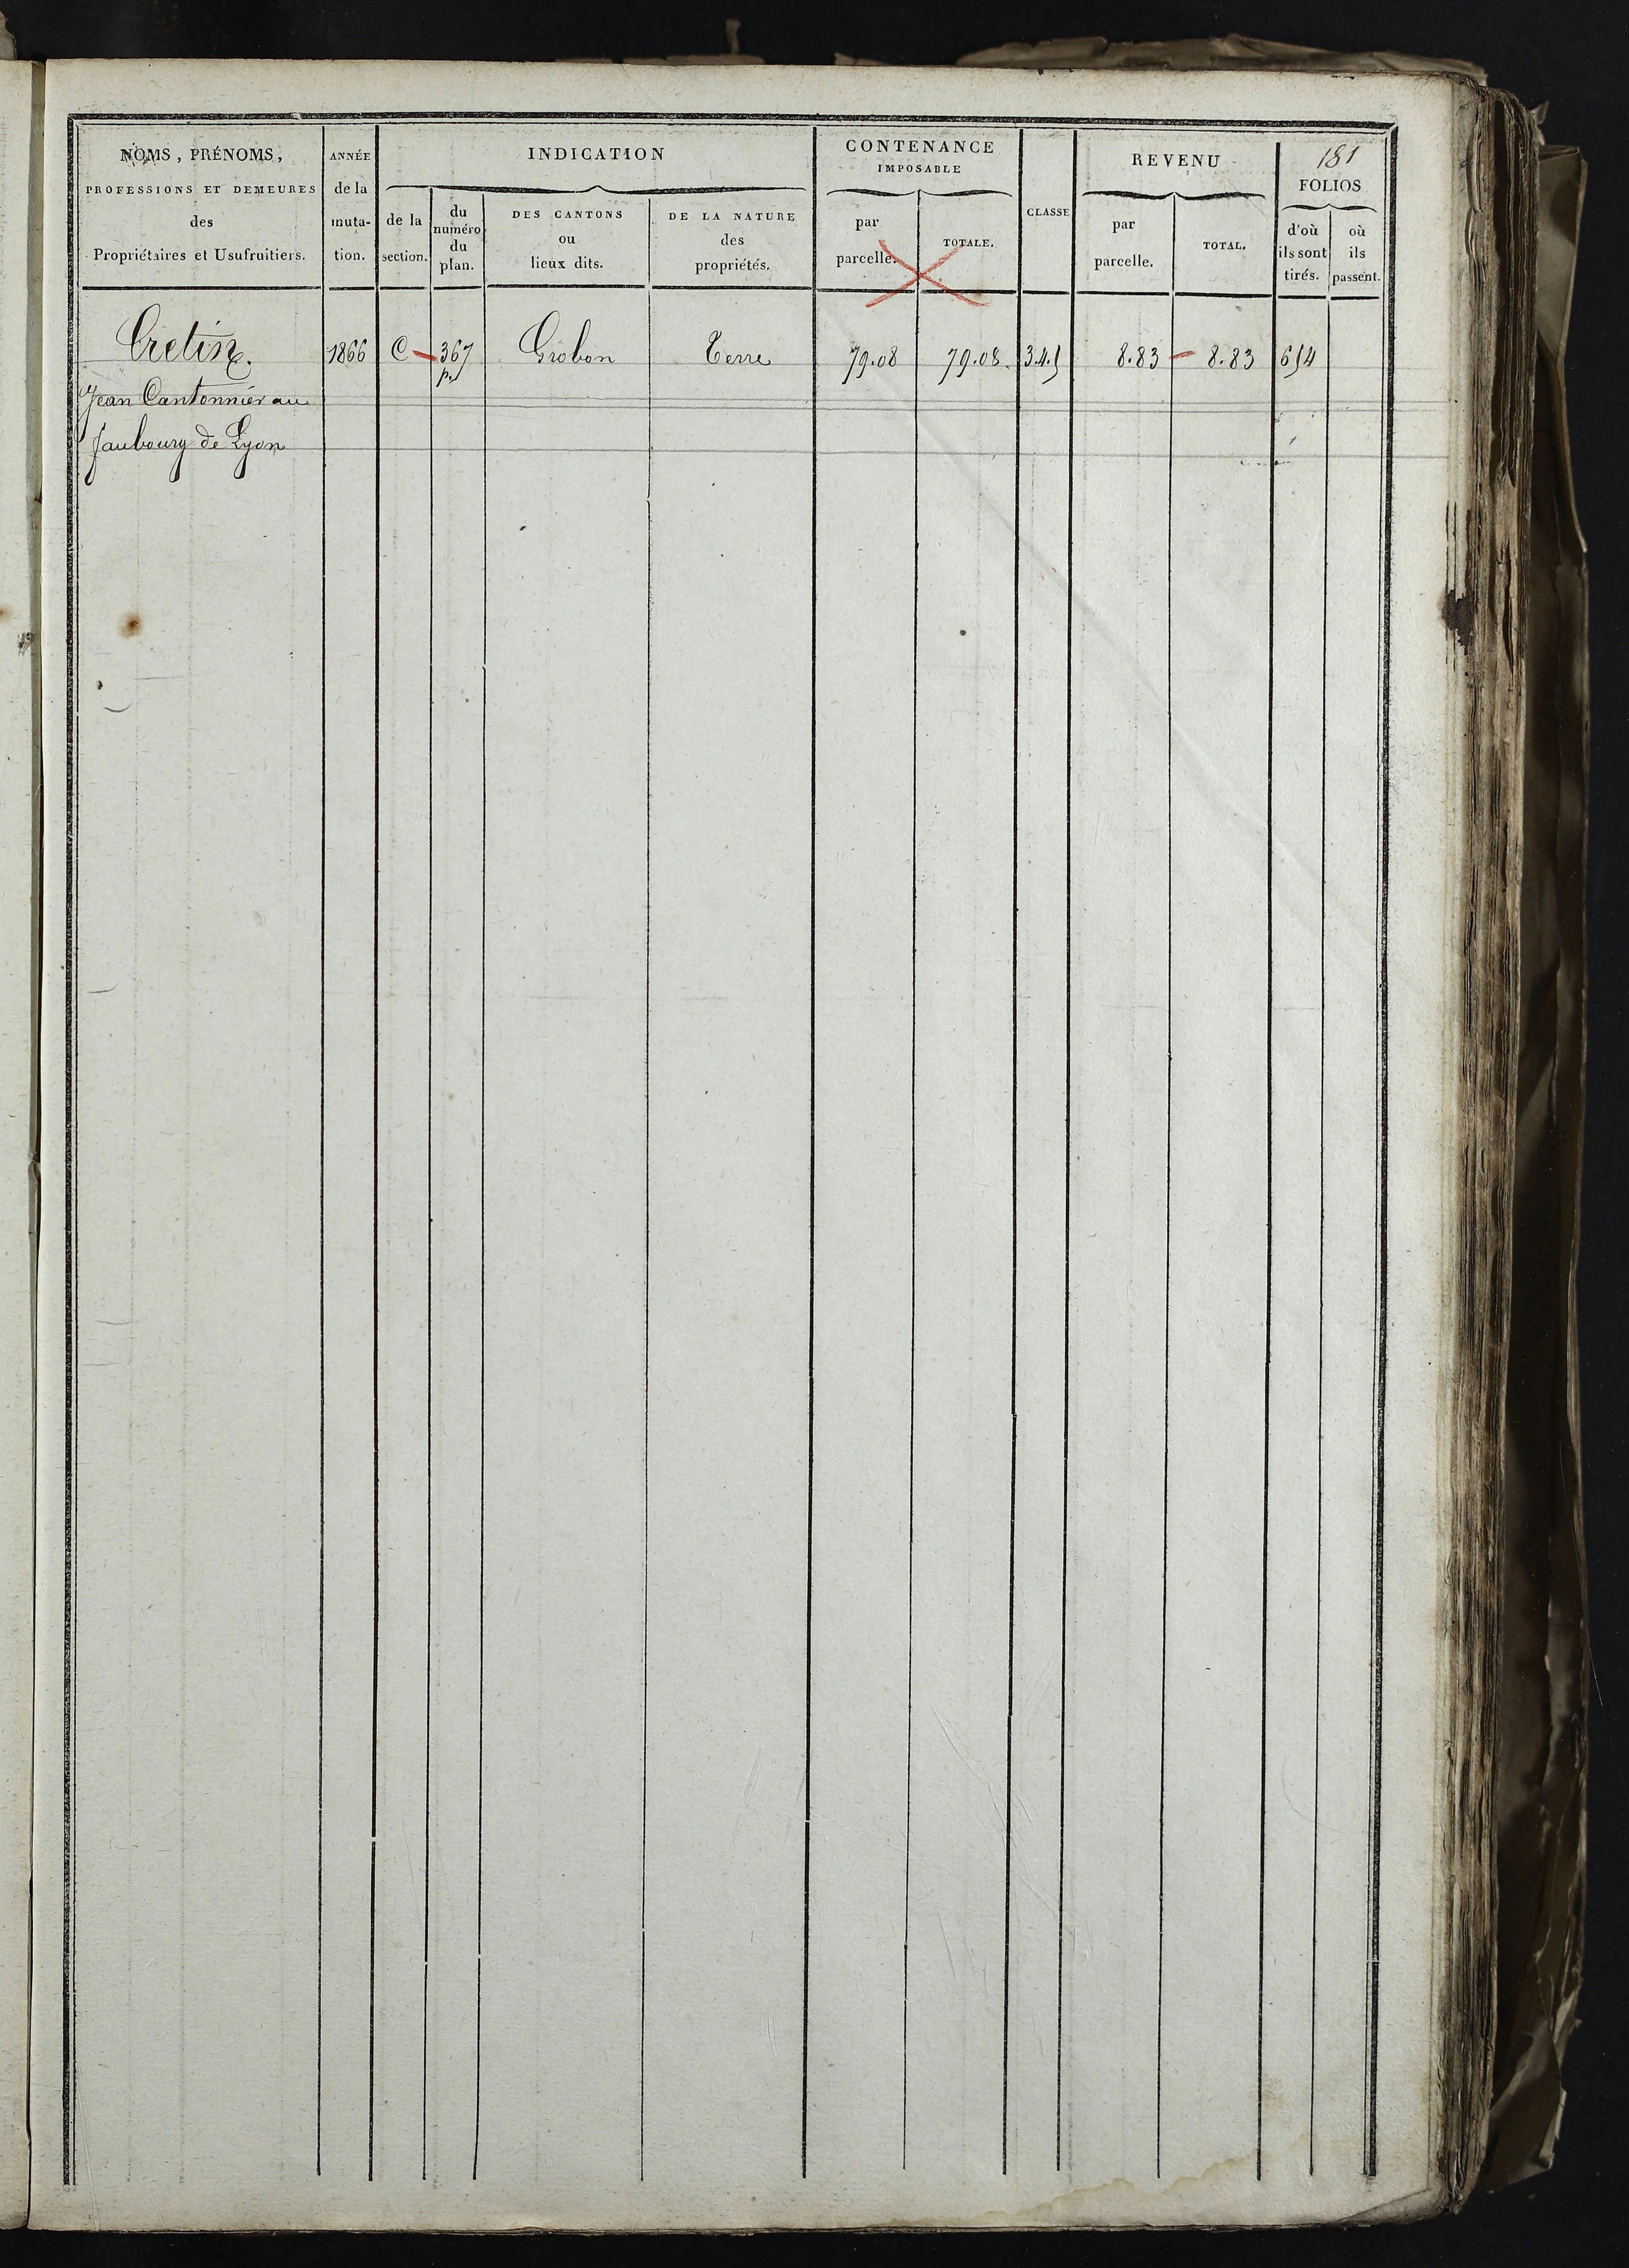 181
NOMS, PRÉNOMS,
PROFESSIONS ET DEMEURES
des
Propriétaires et Usufruitiers.
ANNÉE
de la
muta-
tion.
INDICATION
de la
section.
du
numéro
du
plan.
DES CANTONS
ou
lieux dits.
DE LA NATURE
des
propriétés.
CONTENANCE
IMPOSABLE
par
parcelle.
TOTALE.
CLASSE
REVENU
par
parcelle.
TOTAL.
FOLIOS
d'où
ils sont
tirés.
où
ils
passent.
Cretin. 1866 C 367 Grobon Terre 79.08 79.08. 3.4.5 8.83 8.83 654
p.
Jean Cantonnier au
faubourg de Lyon